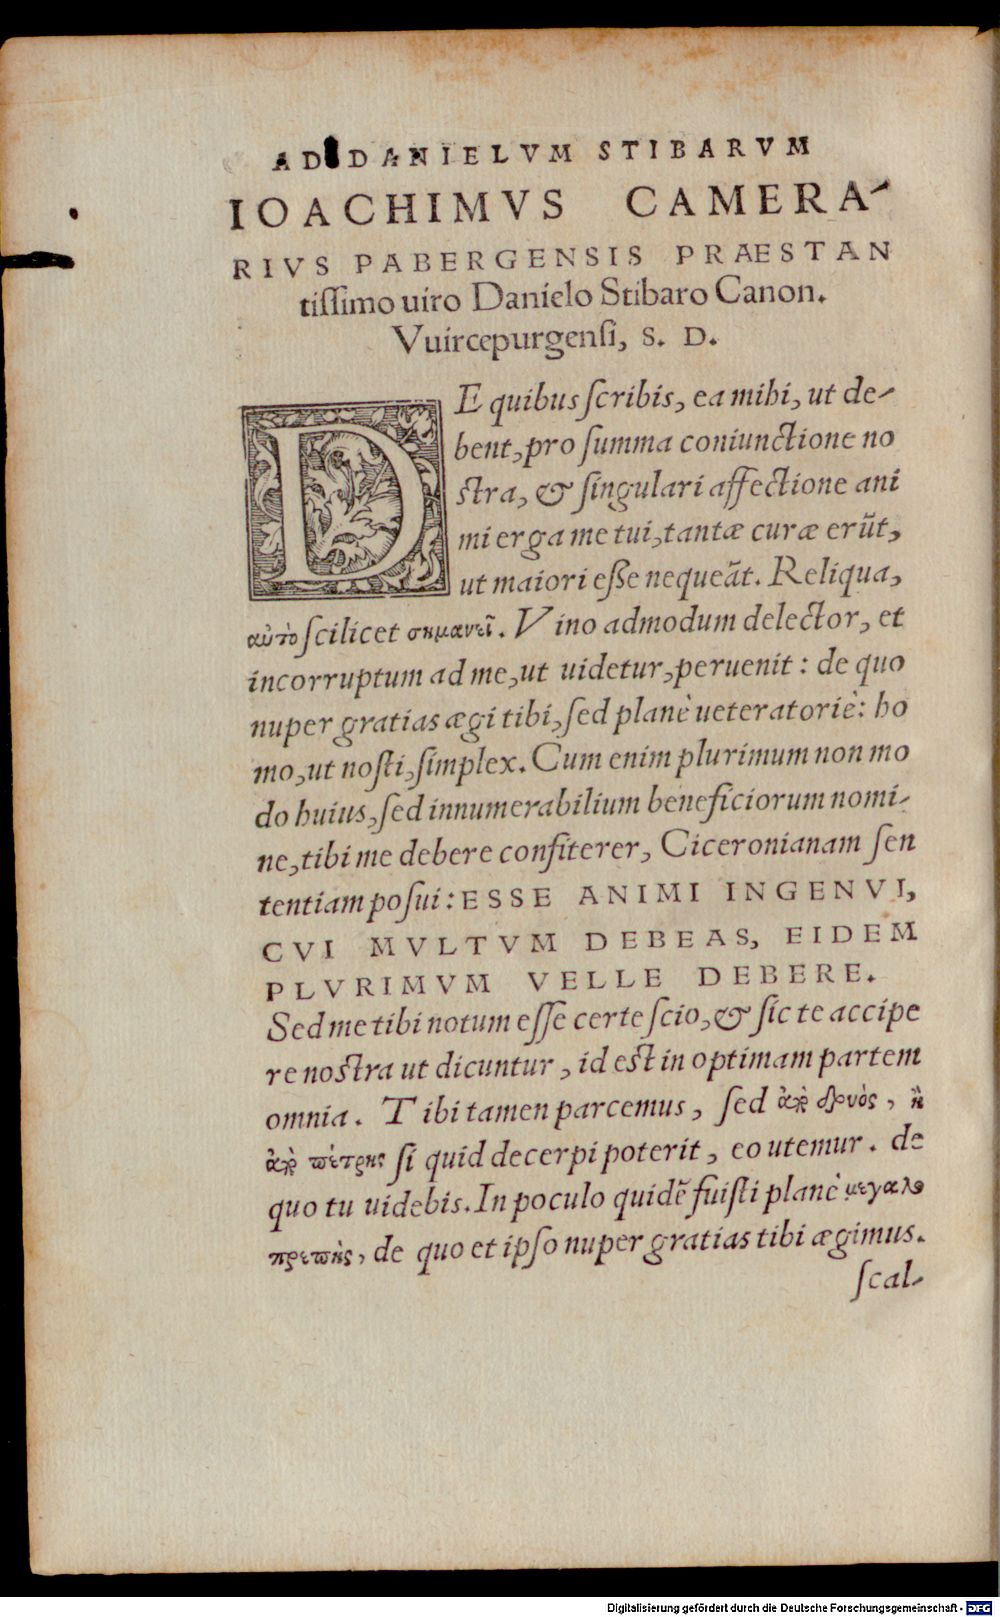 AD DANIELVM STIBARVM
IOACHIMVS CAMERA-
RIVS PABERGENSIS PRAESTAN
tissimo uiro Danielo Stibaro Canon.
Vuircepurgensi, S. D.
DE quibus scribis, ea mihi, ut de-
bent, pro summa coniunctione no
stra, & singulari affectione ani
mi erga me tui, tantæ curæ erūt,
ut maiori esse nequeāt. Reliqua,
αὐτὸ scilicet σημανεῖ. Vino admodum delector, et
incorruptum ad me, ut uidetur, peruenit: de quo
nuper gratias ægi tibi, sed planè ueteratoriè: ho
mo, ut nosti, simplex. Cum enim plurimum non mo
do huius, sed innumerabilium beneficiorum nomi-
ne, tibi me debere confiterer, Ciceronianam sen
tentiam posui: ESSE ANIMI INGENVI,
CVI MVLTVM DEBEAS, EIDEM
PLVRIMVM VELLE DEBERE.
Sed me tibi notum esse certe scio, & sic te accipe
re nostra ut dicuntur, id est in optimam partem
omnia. Tibi tamen parcemus, sed ἀπὸ δρυὸς, ἢ
ἀπὸ πέτρης si quid decerpi poterit, eo utemur. de
quo tu uidebis. In poculo quidē fuisti planè μεγαλο
πρεπὴς, de quo et ipso nuper gratias tibi ægimus.
scal-
Digitalisierung gefördert durch die Deutsche Forschungsgemeinschaft - DFG